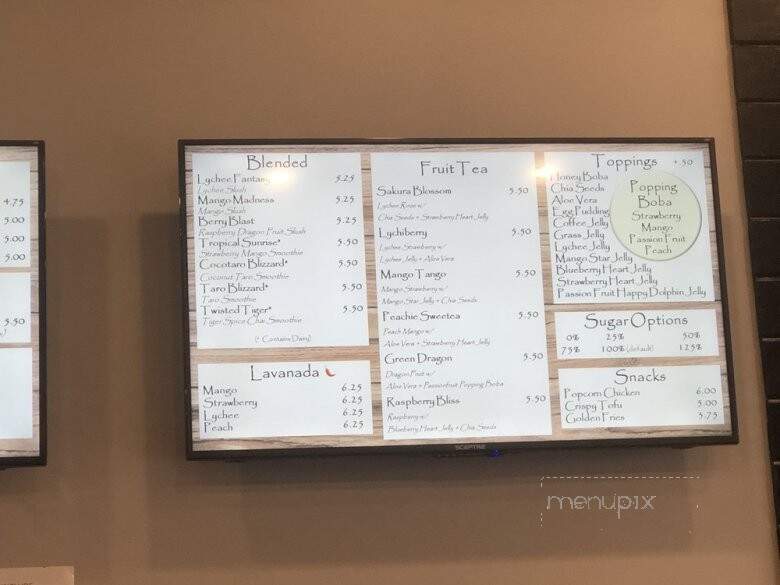 4.75
5.00
5.00
5.00
5.50
Blended
Lychee Fantasy 5.25
Lychee Slush
Mango Madness 5.25
Mango Slush
Berry Blast 5.25
Raspberry Dragon Fruit Slush
Tropical Sunrise* 5.50
Strawberry Mango Smoothie
Cocotaro Blizzard* 5.50
Coconut Taro Smoothie
Taro Blizzard* 5.50
Taro Smoothie
Twisted Tiger* 5.50
Tiger Spice Chai Smoothie
(* Contains Dairy)
Lavanada
Mango 6.25
Strawberry 6.25
Lychee 6.25
Peach 6.25
Fruit Tea
Sakura Blossom 5.50
Lychee Rose w/
Chia Seeds + Strawberry Heart Jelly
Lychiberry 5.50
Lychee Strawberry w/
Lychee Jelly + Aloe Vera
Mango Tango 5.50
Mango Strawberry w/
Mango Star Jelly + Chia Seeds
Peachie Sweetea 5.50
Peach Mango w/
Aloe Vera + Strawberry Heart Jelly
Green Dragon 5.50
Dragon Fruit w/
Aloe Vera + Passionfruit Popping Boba
Raspberry Bliss 5.50
Raspberry w/
Blueberry Heart Jelly + Chia Seeds
Toppings +.50
Honey Boba
Chia Seeds
Aloe Vera
Egg Pudding
Coffee Jelly
Grass Jelly
Lychee Jelly
Mango Star Jelly
Blueberry Heart Jelly
Strawberry Heart Jelly
Passion Fruit Happy Dolphin Jelly
Popping
Boba
Strawberry
Mango
Passion Fruit
Peach
Sugar Options
0% 25% 50%
75% 100% (default) 125%
Snacks
Popcorn Chicken 6.00
Crispy Tofu 5.00
Golden Fries 3.75
SCEPTRE
menupix